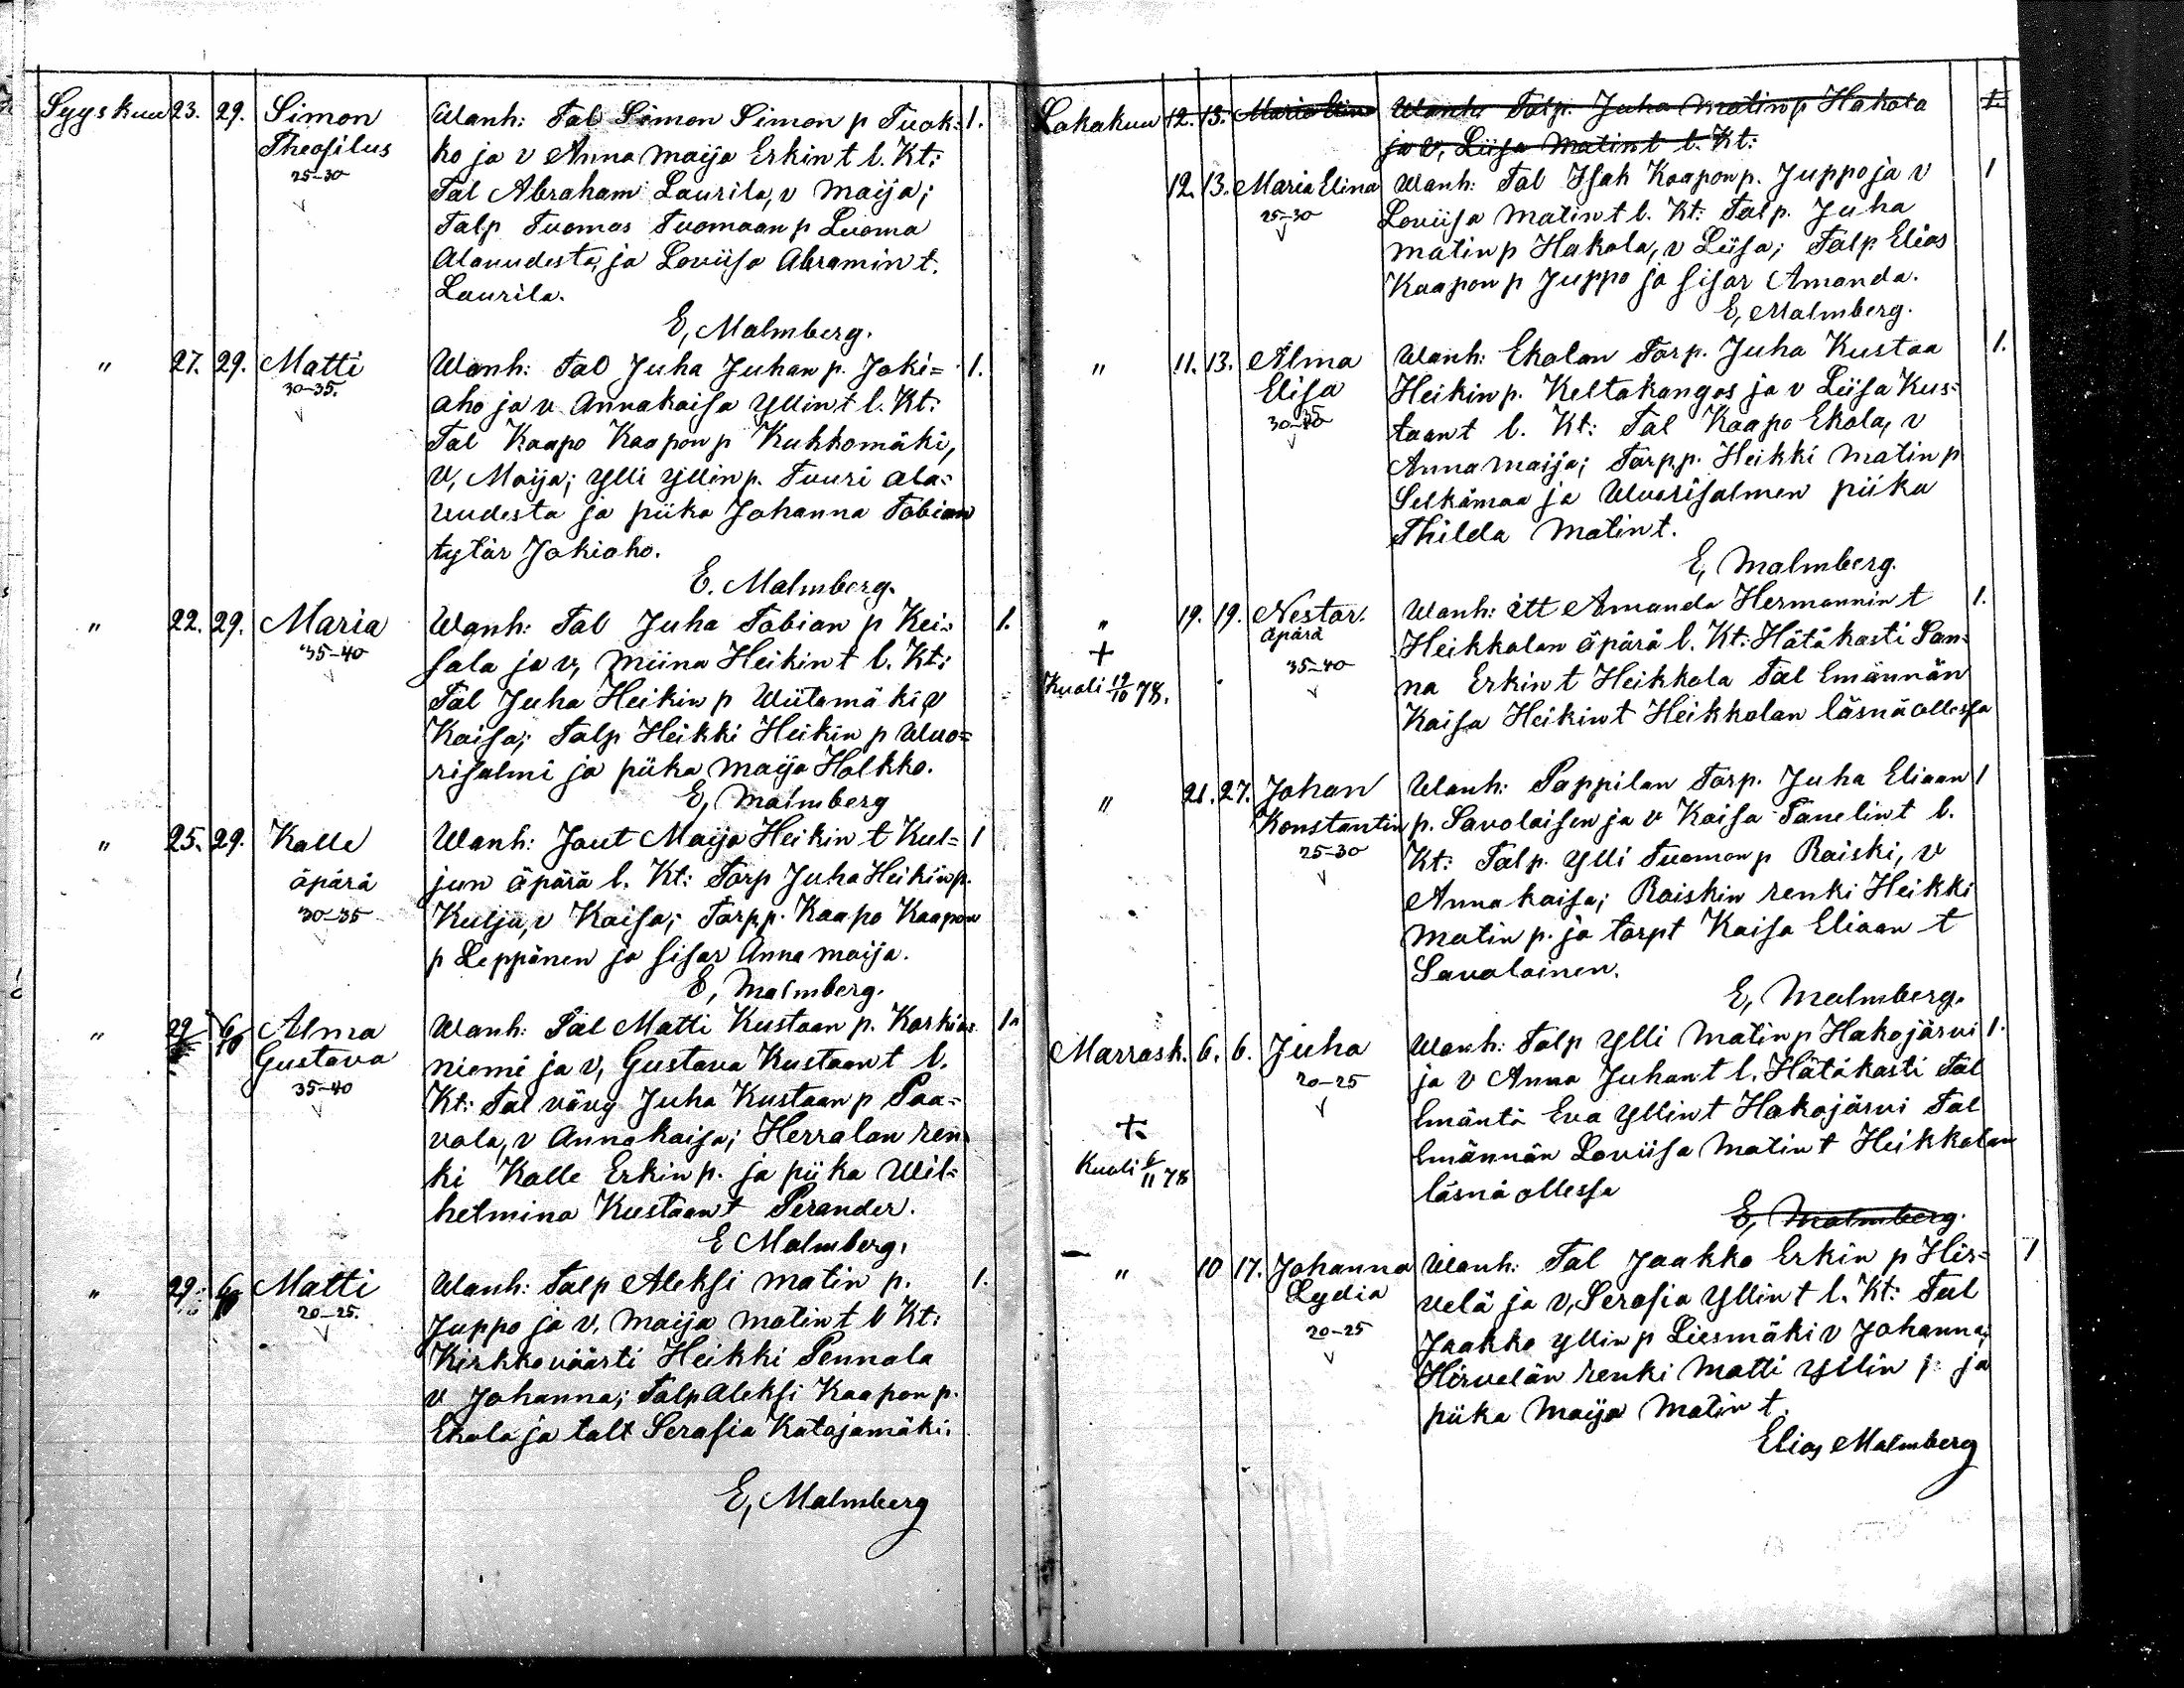 Syyskuu 23. 29. Simon Wanh: Tal Simon Simon p Tuok= 1.
Theofilus ko ja v Anna Maija Erkin t l. Kt:
25-30 Tal Abraham Laurila, v Maija;
Talp Tuomas Tuomaan p Luoma
Alavudesta, ja Loviisa Abramin t.
Laurila.
E, Malmberg.
" 27. 29. Matti Wanh: Tal Juha Juhan p. Joki= 1.
30-35. aho ja v Annakaisa Yllin t l. Kt:
Tal Kaapo Kaapon p Kukkomäki,
v, Maija; Ylli Yllin p. Tuuri Ala=
vudesta ja piika Johanna Tobian
tytär Jokiaho.
E. Malmberg.
" 22. 29. Maria Wanh: Tal Juha Tobian p Kei= 1.
35-40 sala ja v, Miina Heikin t l. Kt:
Tal Juha Heikin p Wiitamäki v
Kaisa; Talp Heikki Heikin p Wuo=
risalmi ja piika Maija Holkko.
E, Malmberg
" 25. 29. Kalle Wanh: Jout Maija Heikin t Kul= 1
äpärä jun äpärä l. Kt: Torp Juha Heikin p.
30-35 Kulju, v Kaisa; Torp.p. Kaapo Kaapon
p Leppänen ja sisar Anna maija.
E, Malmberg.
" 29 6/10 Alma Wanh: Tal Matti Kustaan p. Karkia= 1.
Gustava niemi ja v, Gustava Kustaan t l.
35-40 Kt: Tal vävy Juha Kustaan p Paa=
vola, v Annakaisa; Herralan ren
ki Kalle Erkin p. ja piika Wil=
helmina Kustaan t Perander.
E Malmberg.
" 29. 6/10 Matti Wanh: Talp Aleksi Matin p. 1.
20-25. Juppo ja v. Maija Matin t l Kt:
Kirkkoväärti Heikki Pennala
v Johanna; Talp Aleksi Kaapon p.
Ekola ja talt Serafia Katajamäki.
E, Malmberg
Lokakuu 12. 13. Maria Elina Wanh: Talp. Juha Matin p Hakola 1.
ja v, Liisa Matin t l. Kt:
12. 13. Maria Elina Wanh: Tal Isak Kaapon p. Juppo ja v 1
25-30 Loviisa Matin t l. Kt: Talp. Juha
Matin p Hakola, v Liisa; Talp Elias
Kaapon p Juppo ja sisar Amanda.
E, Malmberg.
" 11. 13. Alma Wanh: Ekolan Torp. Juha Kustaa 1.
Elisa Heikin p. Keltakangas ja v Liisa Kus=
30-35 taan t l. Kt: Tal Kaapo Ekola, v
Anna maija; Torp.p. Heikki Matin p
Selkämaa ja Wuorisalmen piika
Thilda Matin t.
E, Malmberg.
" 19. 19. Nestor. Wanh: itt Amanda Hermannin t 1.
äpärä Heikkolan äpärä l. Kt: Hätäkasti San=
+ 35-40 na Erkin t Heikkola Tal Emännän
Kuoli 19/10 78. Kaisa Heikin t Heikkolan läsnä ollessa
" 21. 27. Johan Wanh: Pappilan Torp. Juha Eliaan 1
Konstantin p. Savolaisen ja v Kaisa Tanelin t l.
25-30 Kt: Talp. Ylli Tuomon p Raiski, v
Annakaisa; Raiskin renki Heikki
Matin p. ja torpt Kaisa Eliaan t
Savolainen.
E, Malmberg.
Marrask. 6. 6. Juha Wanh: Talp Ylli Matin p Hakojärvi 1.
20-25 ja v Anna Juhan t l. Hätäkasti Tal
Emäntä Eva Yllin t Hakojärvi Tal
+ Emännän Loviisa Matin t Heikkolan
Kuoli 6/11 78 läsnä ollessa
E, Malmberg.
" 10 17. Johanna Wanh: Tal Jaakko Erkin p Hir= 1
Lydia velä ja v, Serafia Yllin t l. Kt: Tal
20-25 Jaakko Yllin p Liesmäki v Johanna;
Hirvelän renki Matti Yllin p ja
piika Maija Matin t.
Elias Malmberg